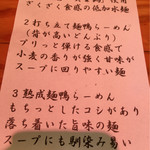 ざくざく食感の低加水麺
2 打ち立て麺鴨らーめん
(背が高いどんぶり)
プリっと弾ける食感で
小麦の香りが強く甘味が
スープに回りやすい麺
3 熟成麺鴨らーめん
もちっとしたコシがあり
落ち着いた旨味の麺
スープにも馴染み易い